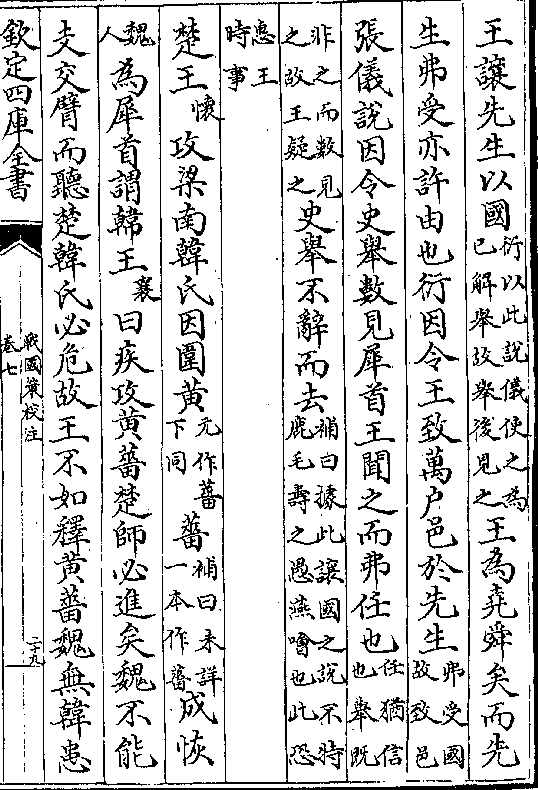 王讓先生以國衍以此說儀使之為已解舉故舉後見之王為堯舜矣而先
生弗受亦許由也衍因令王致萬户邑於先生弗受國故致邑
張儀說因令史舉數見犀首王聞之而弗任也任猶信也舉既
非之而數見之故王疑之史舉不辭而去補曰據此讓國之說不特鹿毛壽之愚燕噲也此恐
惠王時事
楚王懷攻梁南韓氏因圍黄元作薔下同薔補曰未詳一本作薔成恢
魏人為犀首謂韓王襄曰疾攻黄薔楚師必進矣魏不能
支交臂而聽楚韓氏必危故王不如釋黄薔魏無韓患
欽定四庫全書
戰國策校注
卷七
二十九